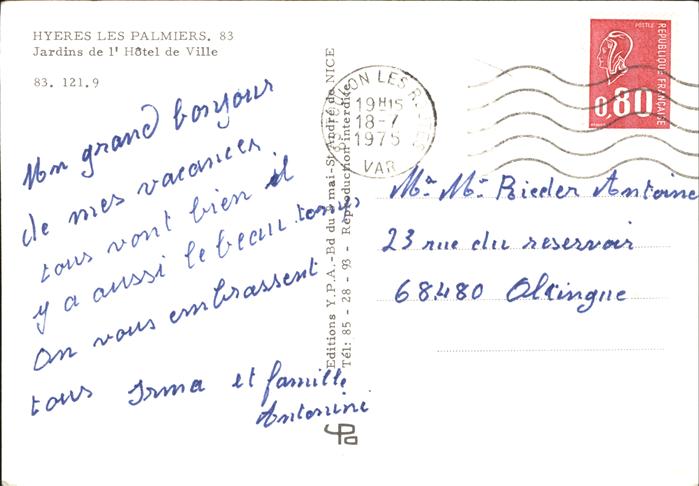 HYERES LES PALMIERS. 83
Jardins de l' Hôtel de Ville
83. 121.9
Mon grand bonjour
de mes vacances
tous vont bien il
y a aussi le beau temps
On vous embrassent
tous Irma et famille
Antonini
Editions Y.P.A.-Bd du mai-St André de NICE
Tél: 85 - 28 - 93 - Reproduction interdite
ypa
LES
19H15
18-7
1975
VAR
POSTES
REPUBLIQUE FRANÇAISE
0,80
Mr. Rieder Antoine
23 rue du reservoir
68480